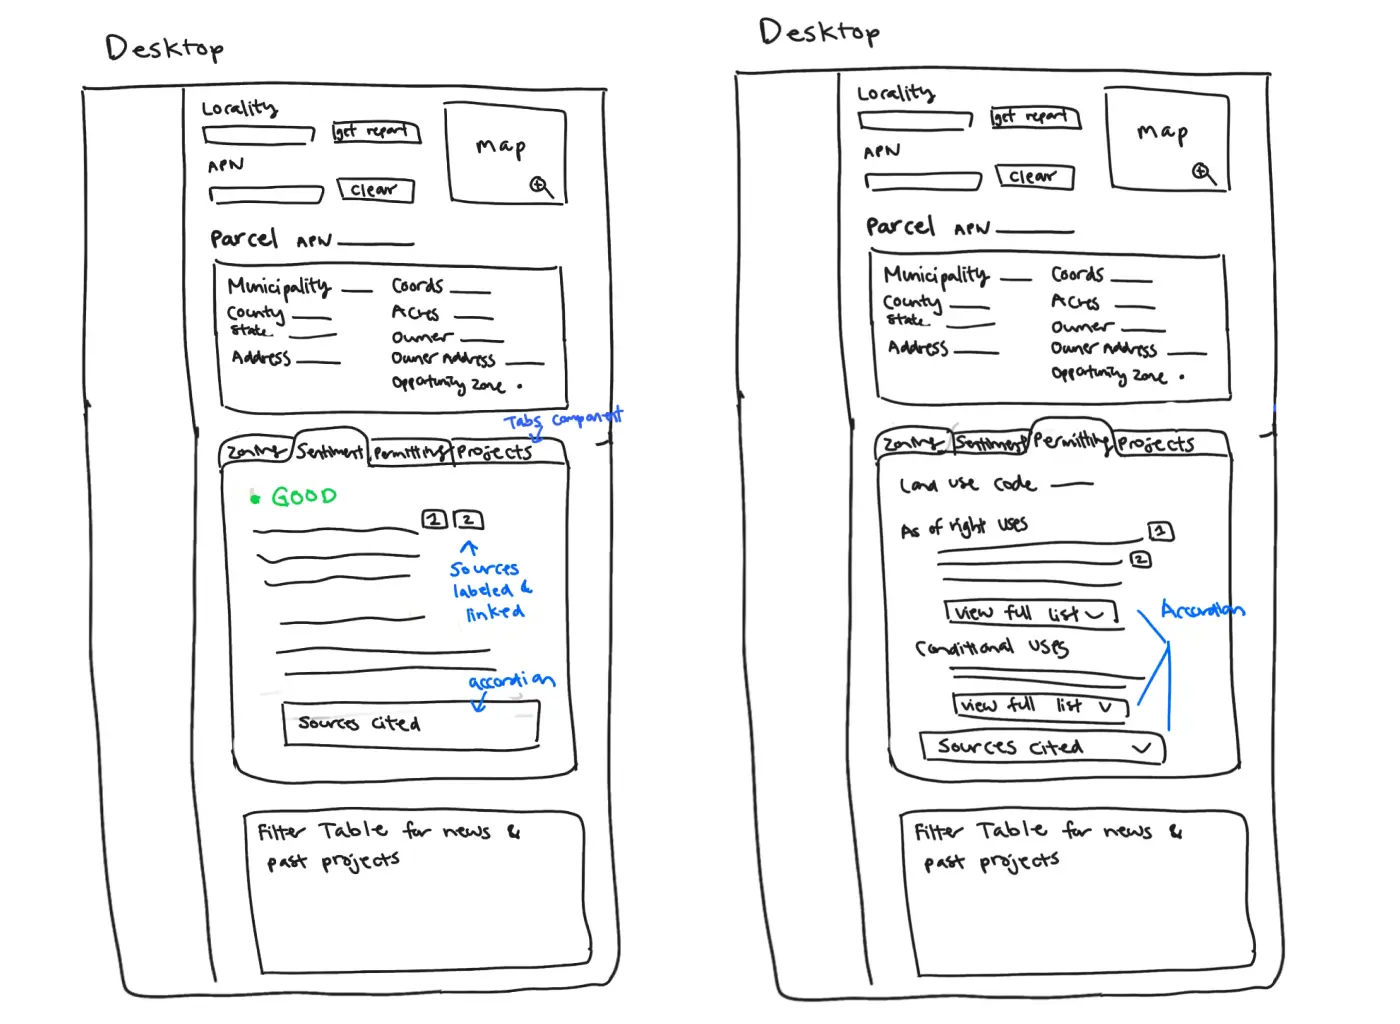 Desktop
Locality
get report
APN
clear
Map
Parcel APN
Municipality
County
State
Address
Coords
Acres
Owner
Owner Address
Opportunity Zone
Tabs component
Zoning Sentiment Permitting Projects
GOOD
1 2
Sources
labeled &
linked
accordian
Sources cited
Filter Table for news &
past projects
Desktop
Locality
get report
APN
clear
Map
Parcel APN
Municipality
County
State
Address
Coords
Acres
Owner
Owner Address
Opportunity Zone
Zoning Sentiment Permitting Projects
Land use code
As of right uses
1
2
view full list
Accordian
Conditional uses
view full list
Sources cited
Filter Table for news &
past projects